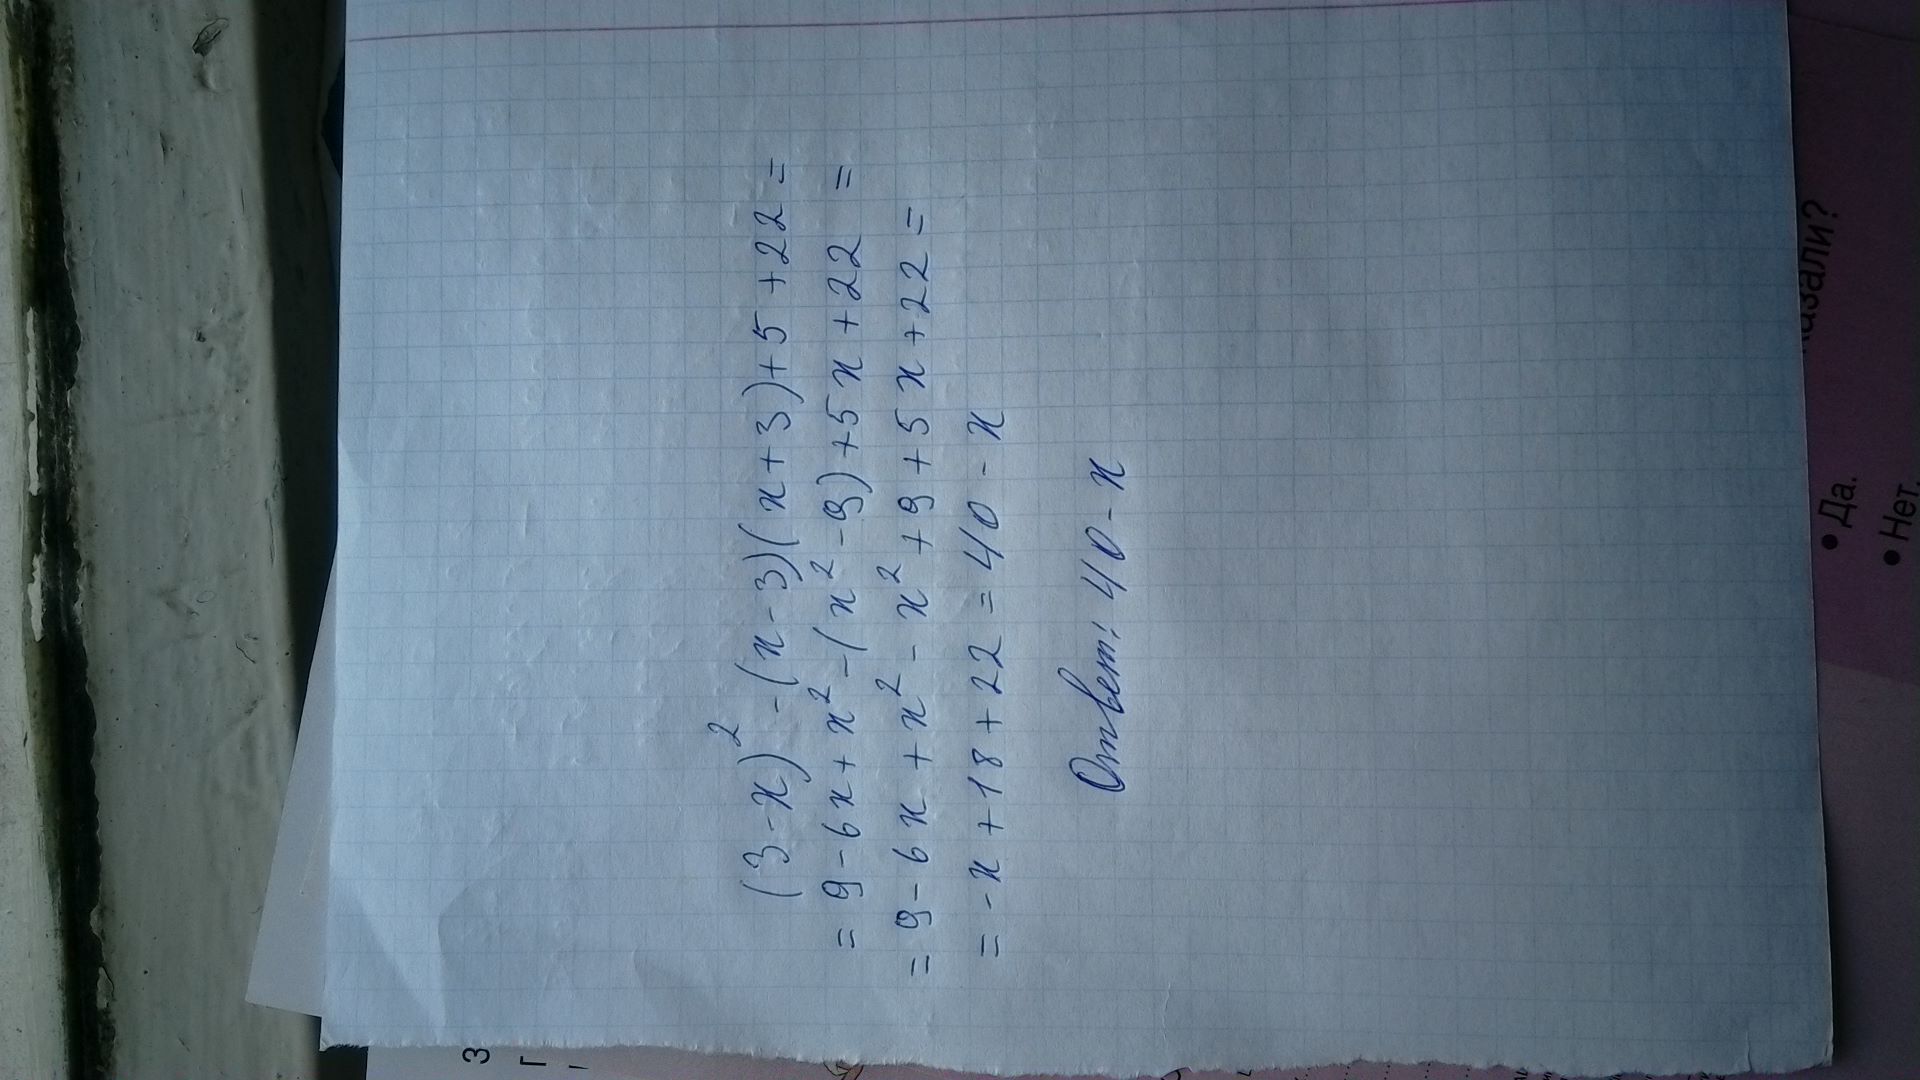 (3-x)² -(x-3)(x+3)+5 +22 =
= 9-6x+x² -(x² -9)+5x+22 =
= 9-6x+x² - x² +9+5x+22 =
= -x+18+22 = 40-x
Ответ: 40-x
казали?
• Да.
• Нет.